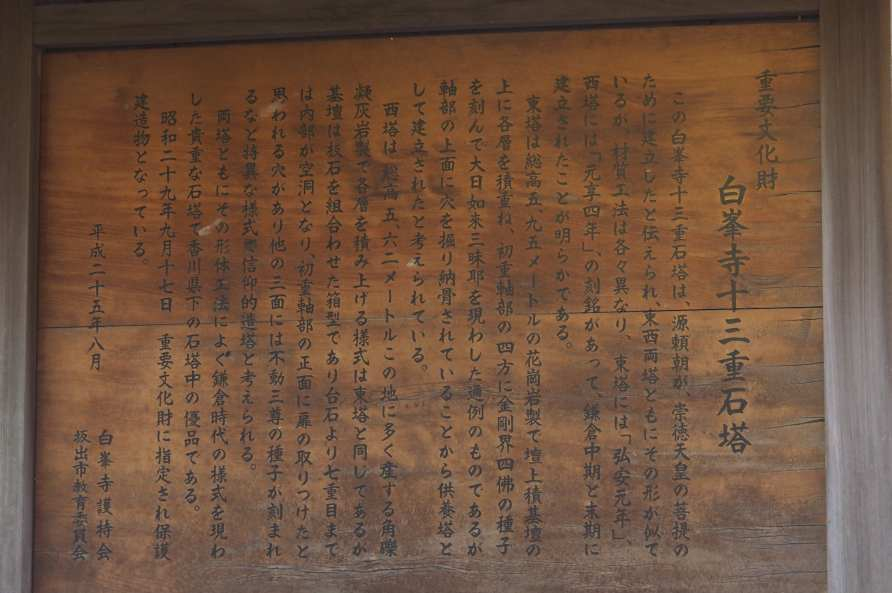 重要文化財
白峯寺十三重石塔
この白峯寺十三重石塔は、源頼朝が、崇徳天皇の菩提の
ために建立したと伝えられ、東西両塔ともにその形が似て
いるが、材質工法は各々異なり、東塔には「弘安元年」、
西塔には「元亨四年」、の刻銘があって、鎌倉中期と末期に
建立されたことが明らかである。
東塔は総高五、九五メートルの花崗岩製で壇上積基壇の
上に各層を積重ね、初重軸部の四方に金剛界四佛の種子
を刻んで大日如来三昧耶を現わした通例のものであるが
軸部の上面に穴を掘り納骨されていることから供養塔と
して建立されたと考えられている。
西塔は、総高五、六二メートルこの地に多く産する角礫
凝灰岩製で各層を積み上げる様式は東塔と同じてあるが
基壇は板石を組合わせた箱型であり台石より七重目まて
は内部が空洞となり、初重軸部の正面に扉の取りつけたと
思われる穴があり他の三面には不動三尊の種子が刻まれ
るなど特異な様式で信仰的造塔と考えられる。
両塔ともにその形体工法によく鎌倉時代の様式を現わ
した貴重な石塔で香川県下の石塔中の優品である。
昭和二十九年九月十七日 重要文化財に指定され保護
建造物となっている。
平成二十五年八月
白峯寺護持会
坂出市教育委員会